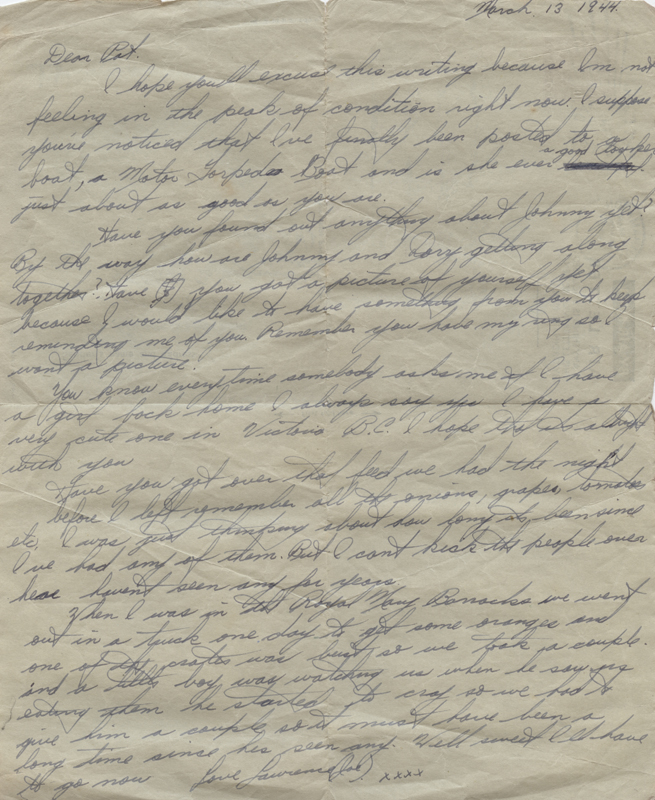 March 13 1944.
Dear Pat.
I hope you'll excuse this writing because I'm not
feeling in the peak of condition right now. I suppose
you're noticed that I've finally been posted to a
boat, a Motor Torpedo Boat and is she ever a good
just about as good as you are.
Have you found out anything about Johnny yet?
By the way how are Johnny and Dory getting along
together? Have you got a picture of yourself yet
because I would like to have something from you to keep
reminding me of you. Remember you have my ring so I
want a picture.
You know everytime somebody asks me if I have
a girl back home I always say yes I have a
very cute one in Victoria B.C. I hope that is alright
with you
Have you got over that feed we had the night
before I left remember all the onions, grapes, tomatoes
etc, I was just thinking about how long its been since
I've had any of them. But I cant kick the people over
here havent seen any for years
When I was in the Royal Navy Barracks we went
out in a truck one day to get some oranges and
one of the crates was bust so we took a couple.
and a little boy was watching us when he saw us
eating them he started to cry so we had to
give him a couple, so it must have been a
long time since his seen any. Well sweet I'll have
to go now Love Lawrence (Joe). xxxx